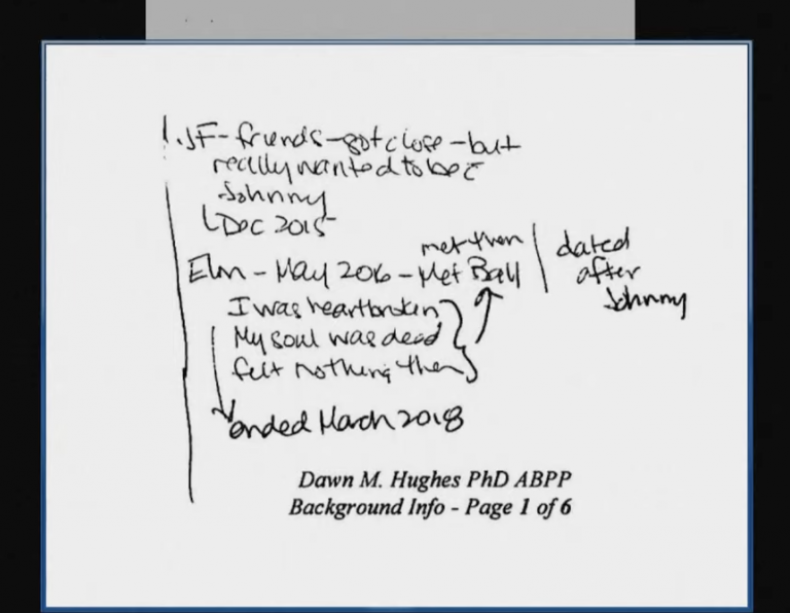 1. JF - friends - got close - but
really wanted to be c̄
Johnny
Dec 2015
Elon - May 2016 - Met Ball
met then
dated
after
Johnny
I was heartbroken
My soul was dead
felt nothing then
ended March 2018
Dawn M. Hughes PhD ABPP
Background Info - Page 1 of 6